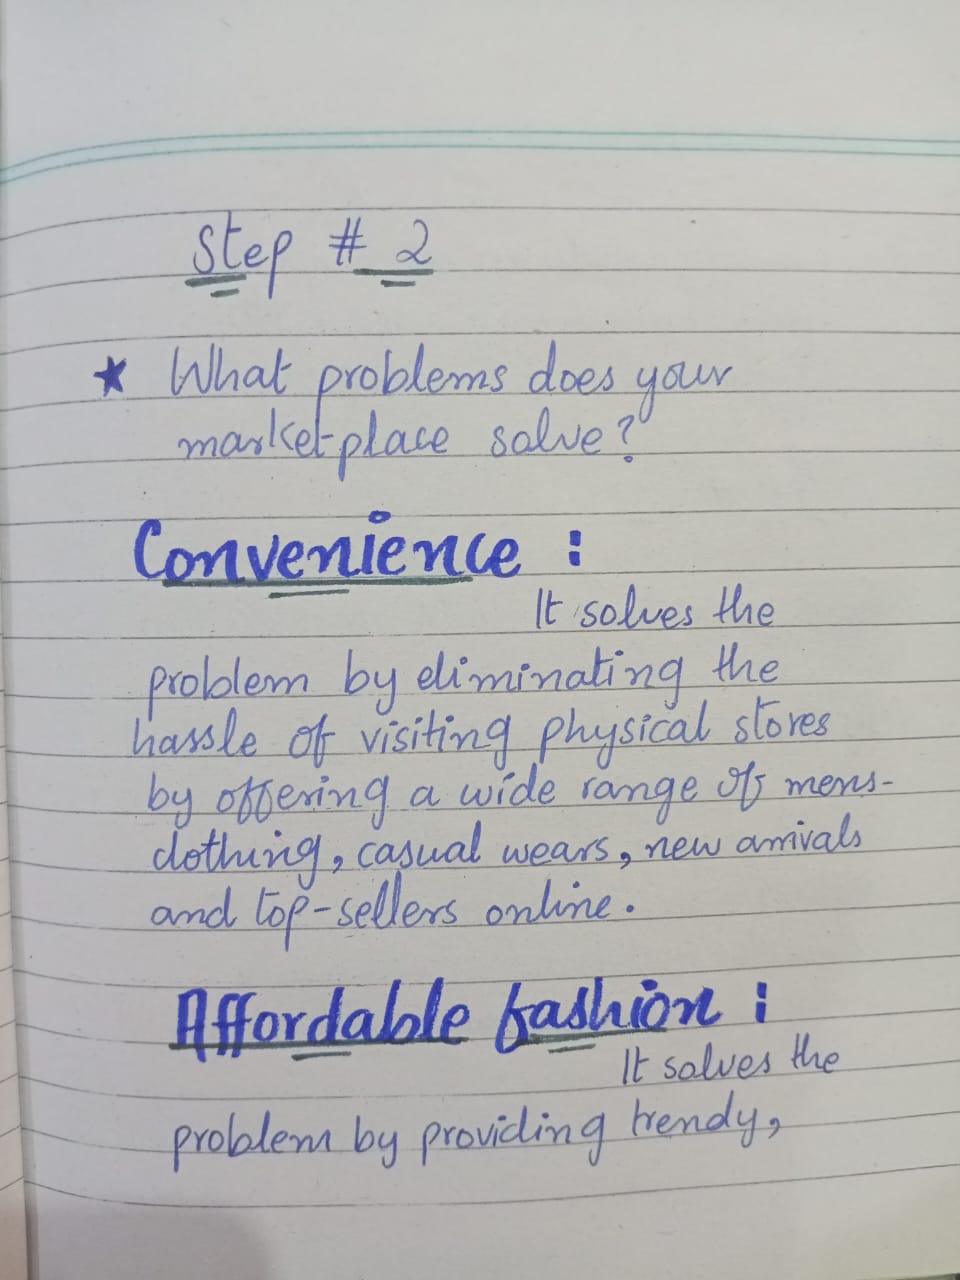 Step # 2
★ What problems does your
market-place solve?
Convenience :
It solves the
problem by eliminating the
hassle of visiting physical stores
by offering a wide range of mens-
clothing, casual wears, new arrivals
and top-sellers online.
Affordable fashion :
It solves the
problem by providing trendy,